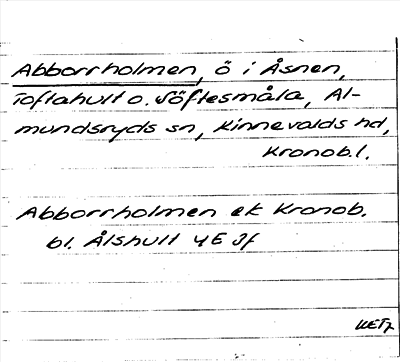 Abborrholmen, ö i Åsnen,
Toftahult o. Söftesmåla, Al-
mundsryds sn, Kinnevalds hd,
Kronob.l.
Abborrholmen ek Kronob.
bl. Ålshult 4E 3f